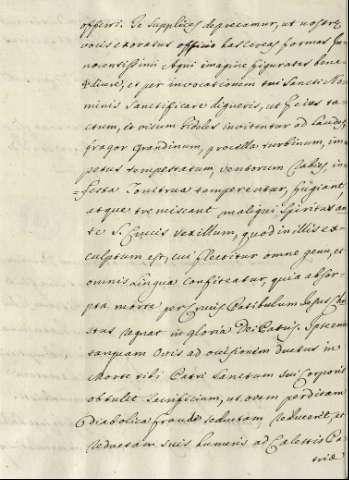 offerri. Te supplices deprecamur, ut nostræ
vocis exoratus officio has cereas formas In-
nocentissimi Agni imagine figuratas bene
dicere, et per invocationem tui Sancti No-
minis Sanctificare digneris, ut Ejus ta-
ctum, et visum Fideles invitentur ad laudes,
fragor grandinum, procella turbinum, im-
petus tempestatum, ventorum rabies, in-
festa Tonitrua temperentur, fugiant,
atque tremiscant maligni Spiritus an-
te S. Crucis vexillum, quod in illis ex-
culptum est, cui flectitur omne genu, et
omnis Lingua confitetur, quia absor-
pta morte per Crucis Patibulum Jesus Chri
stus regnat in gloria Dei Patris. Ipse enim
tanquam Ovis ad occisionem ductus in
Morte tibi Patri Sanctum sui Corporis
obtulit Sacrificium, ut ovem perditam
Diabolica fraude seductam, reduceret, et
reductam suis humeris ad Cælestis Pa
triæ